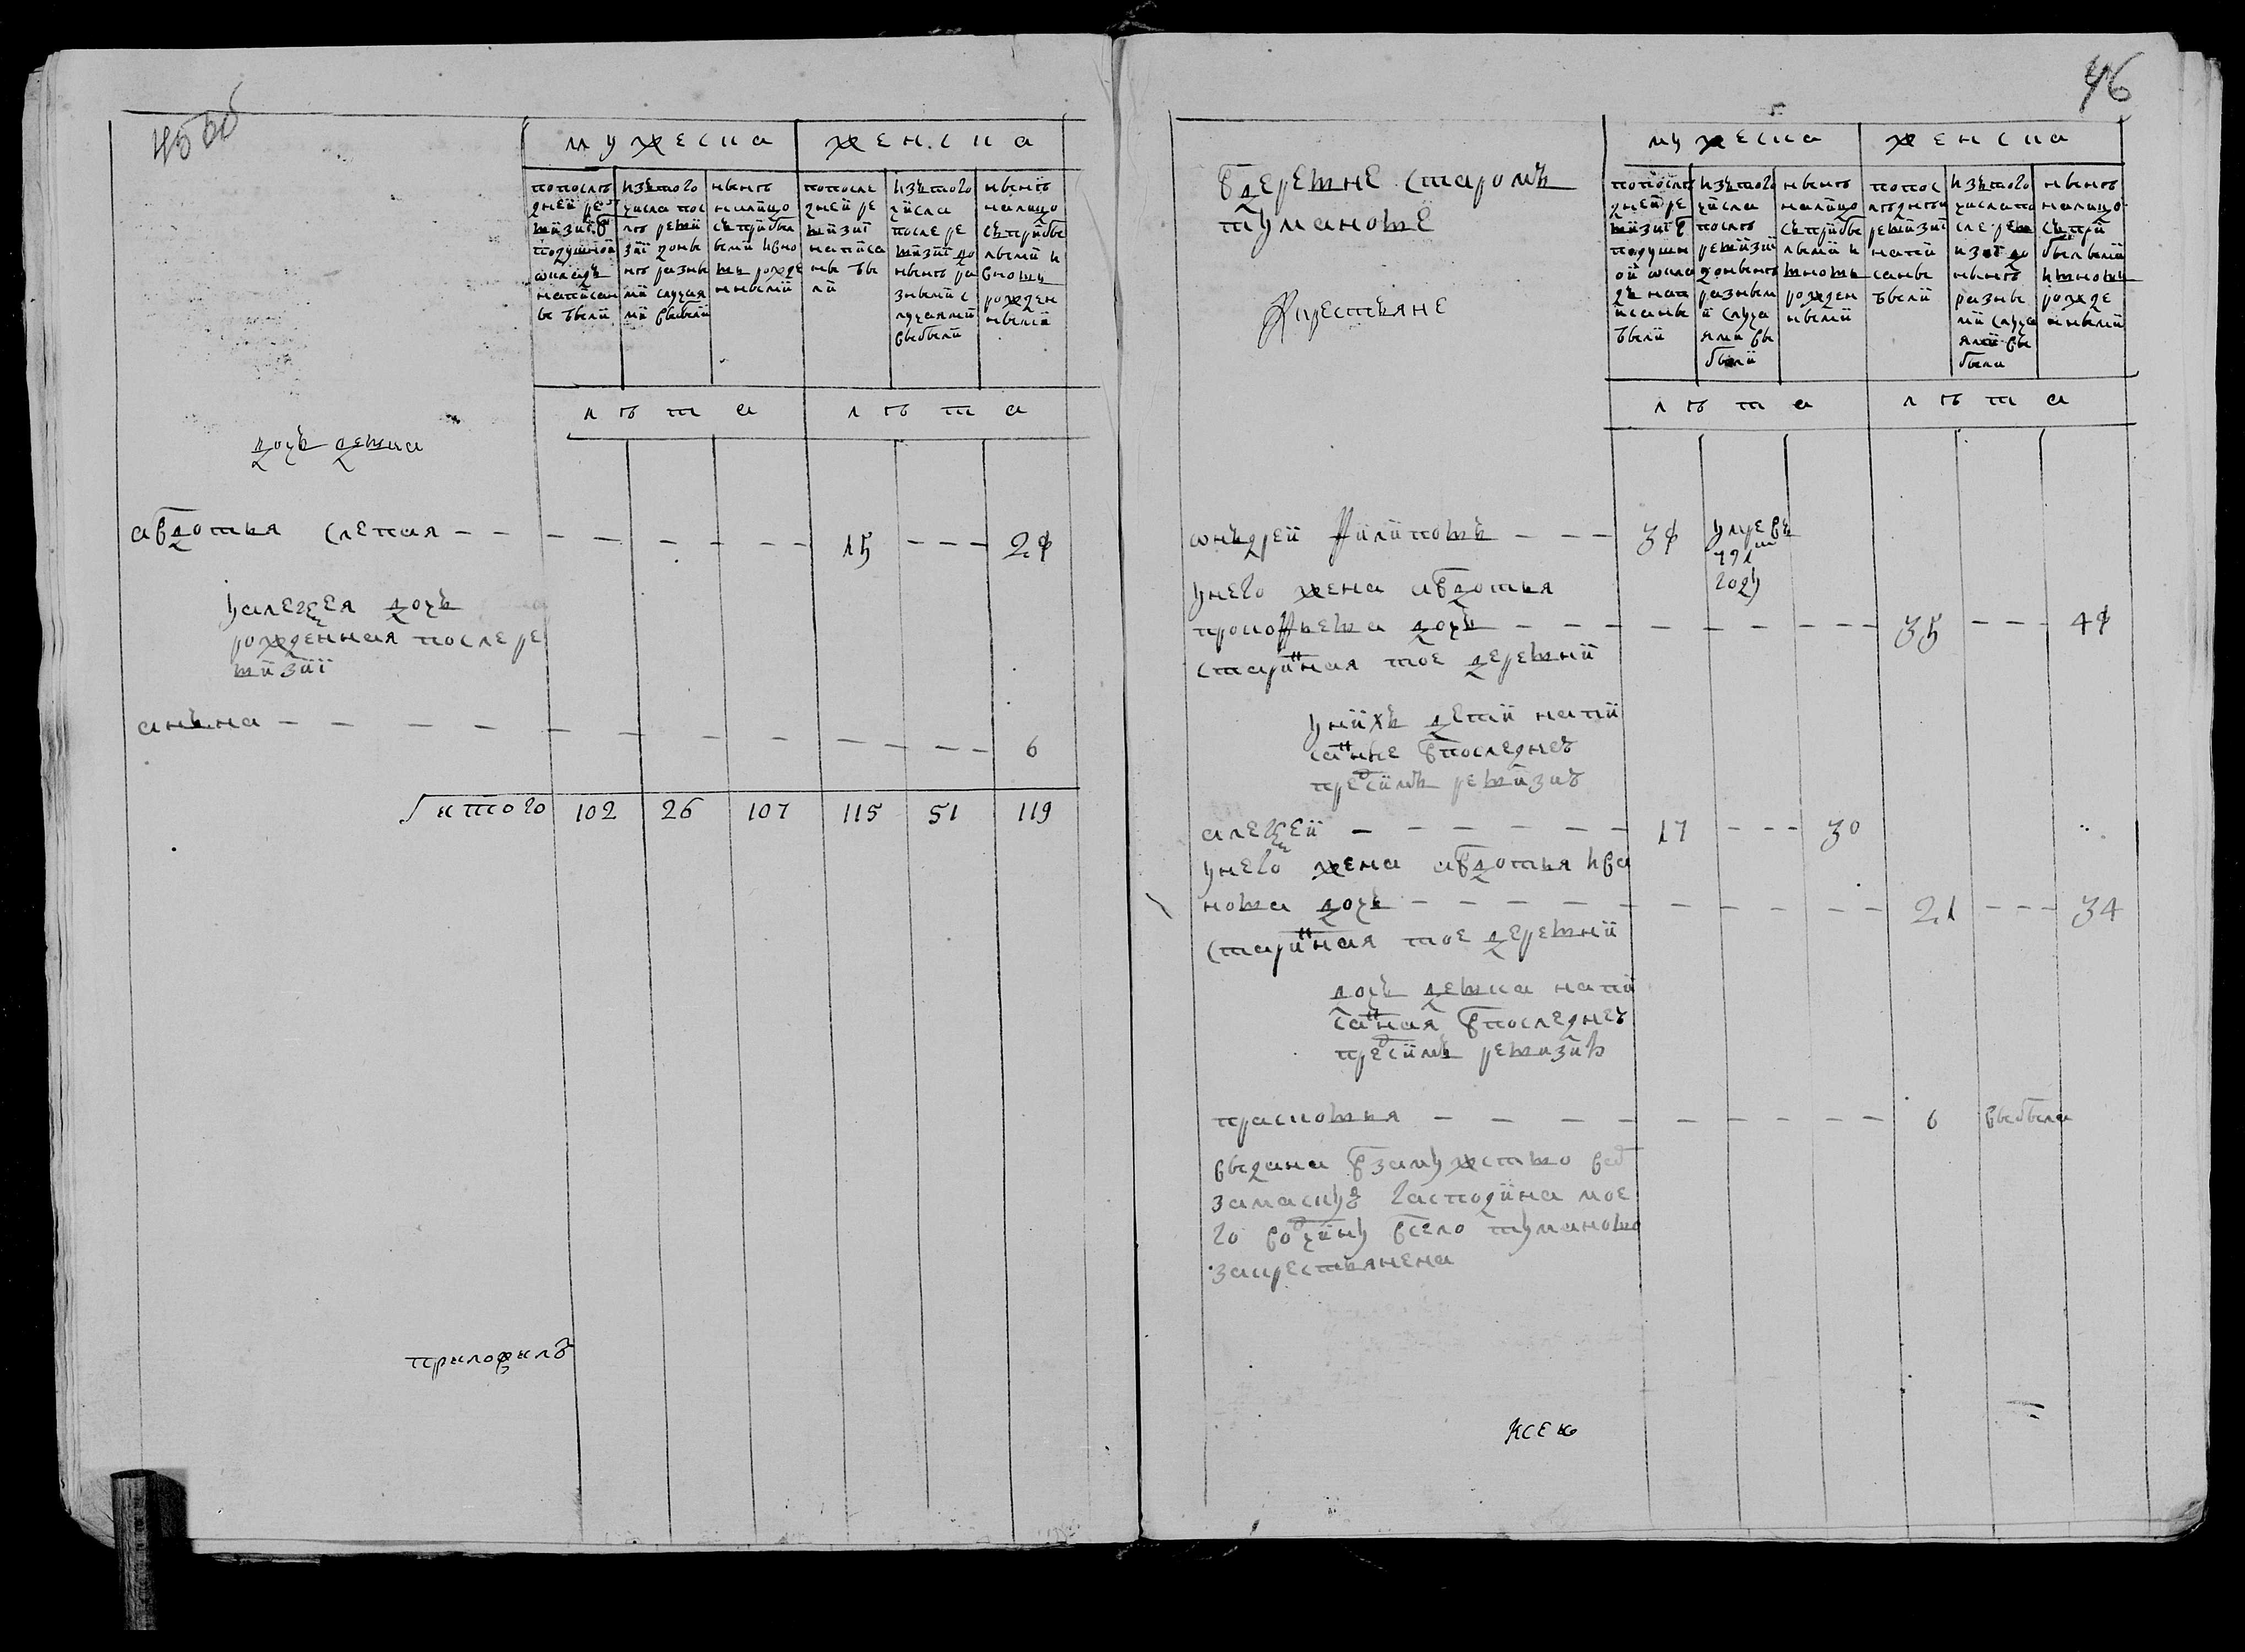 45 об
мужеска женска
попослѣ
дней ре
визiи в
подушной
окладъ
написан
ы были
изътого
числа пос
лѣ реви
зiи доны
нѣ разны
ми случая
ми выбыли
нынѣ
налицо
съ прибы
лыми ивно
вь рожде
нными
попосле
дней ре
визiи
написа
ны бы
ли
изътого
числа
после ре
визiи до
нынѣ ра
зными с
лучаями
выбыли
нынѣ
налицо
съ прибы
лыми и
вновь
рожден
ными
лѣта лѣта
дочь девка
авдотья слепая 15 29
уалексея дочь
рожденная после ре
визiи
анъна 6
итого 102 26 107 115 51 119
приложилъ
46
вдеревне старомъ
туманове
крестьяне
мужеска женска
попослѣ
дней ре
визiи в
подушн
ой окла
дъ нап
исаны
были
изътого
числа
послѣ
ревизiи
донынѣ
разным
и случа
ями вы
были
нынѣ
налицо
съ прибы
лыми и
вновь
рожден
ными
попос
лѣдней
ревизiи
напи
саны
были
изътого
числапо
сле рев
изiи до
нынѣ
разны
ми случа
ями вы
были
нынѣ
налицо
съ при
былыми
ивновь
рожде
нными
лѣта лѣта
онъдрей филиповъ 39 умре въ
791м
году
унего жена авдотья
прокофьева дочь 35 49
старинная тое деревни
унихъ дети напи
санные впоследнеъ
предсимъ ревизиъ
алексей 17 30
унего жена авдотья ива
нова дочь 21 34
старинная тое деревни
дочь девка напи
санная впоследнеъ
предсимъ ревизиѣ
прасковья 6 выбыла
выдана взамужство вед
замаскую господина мое
го вочину всело туманово
закрестьянена
ксею